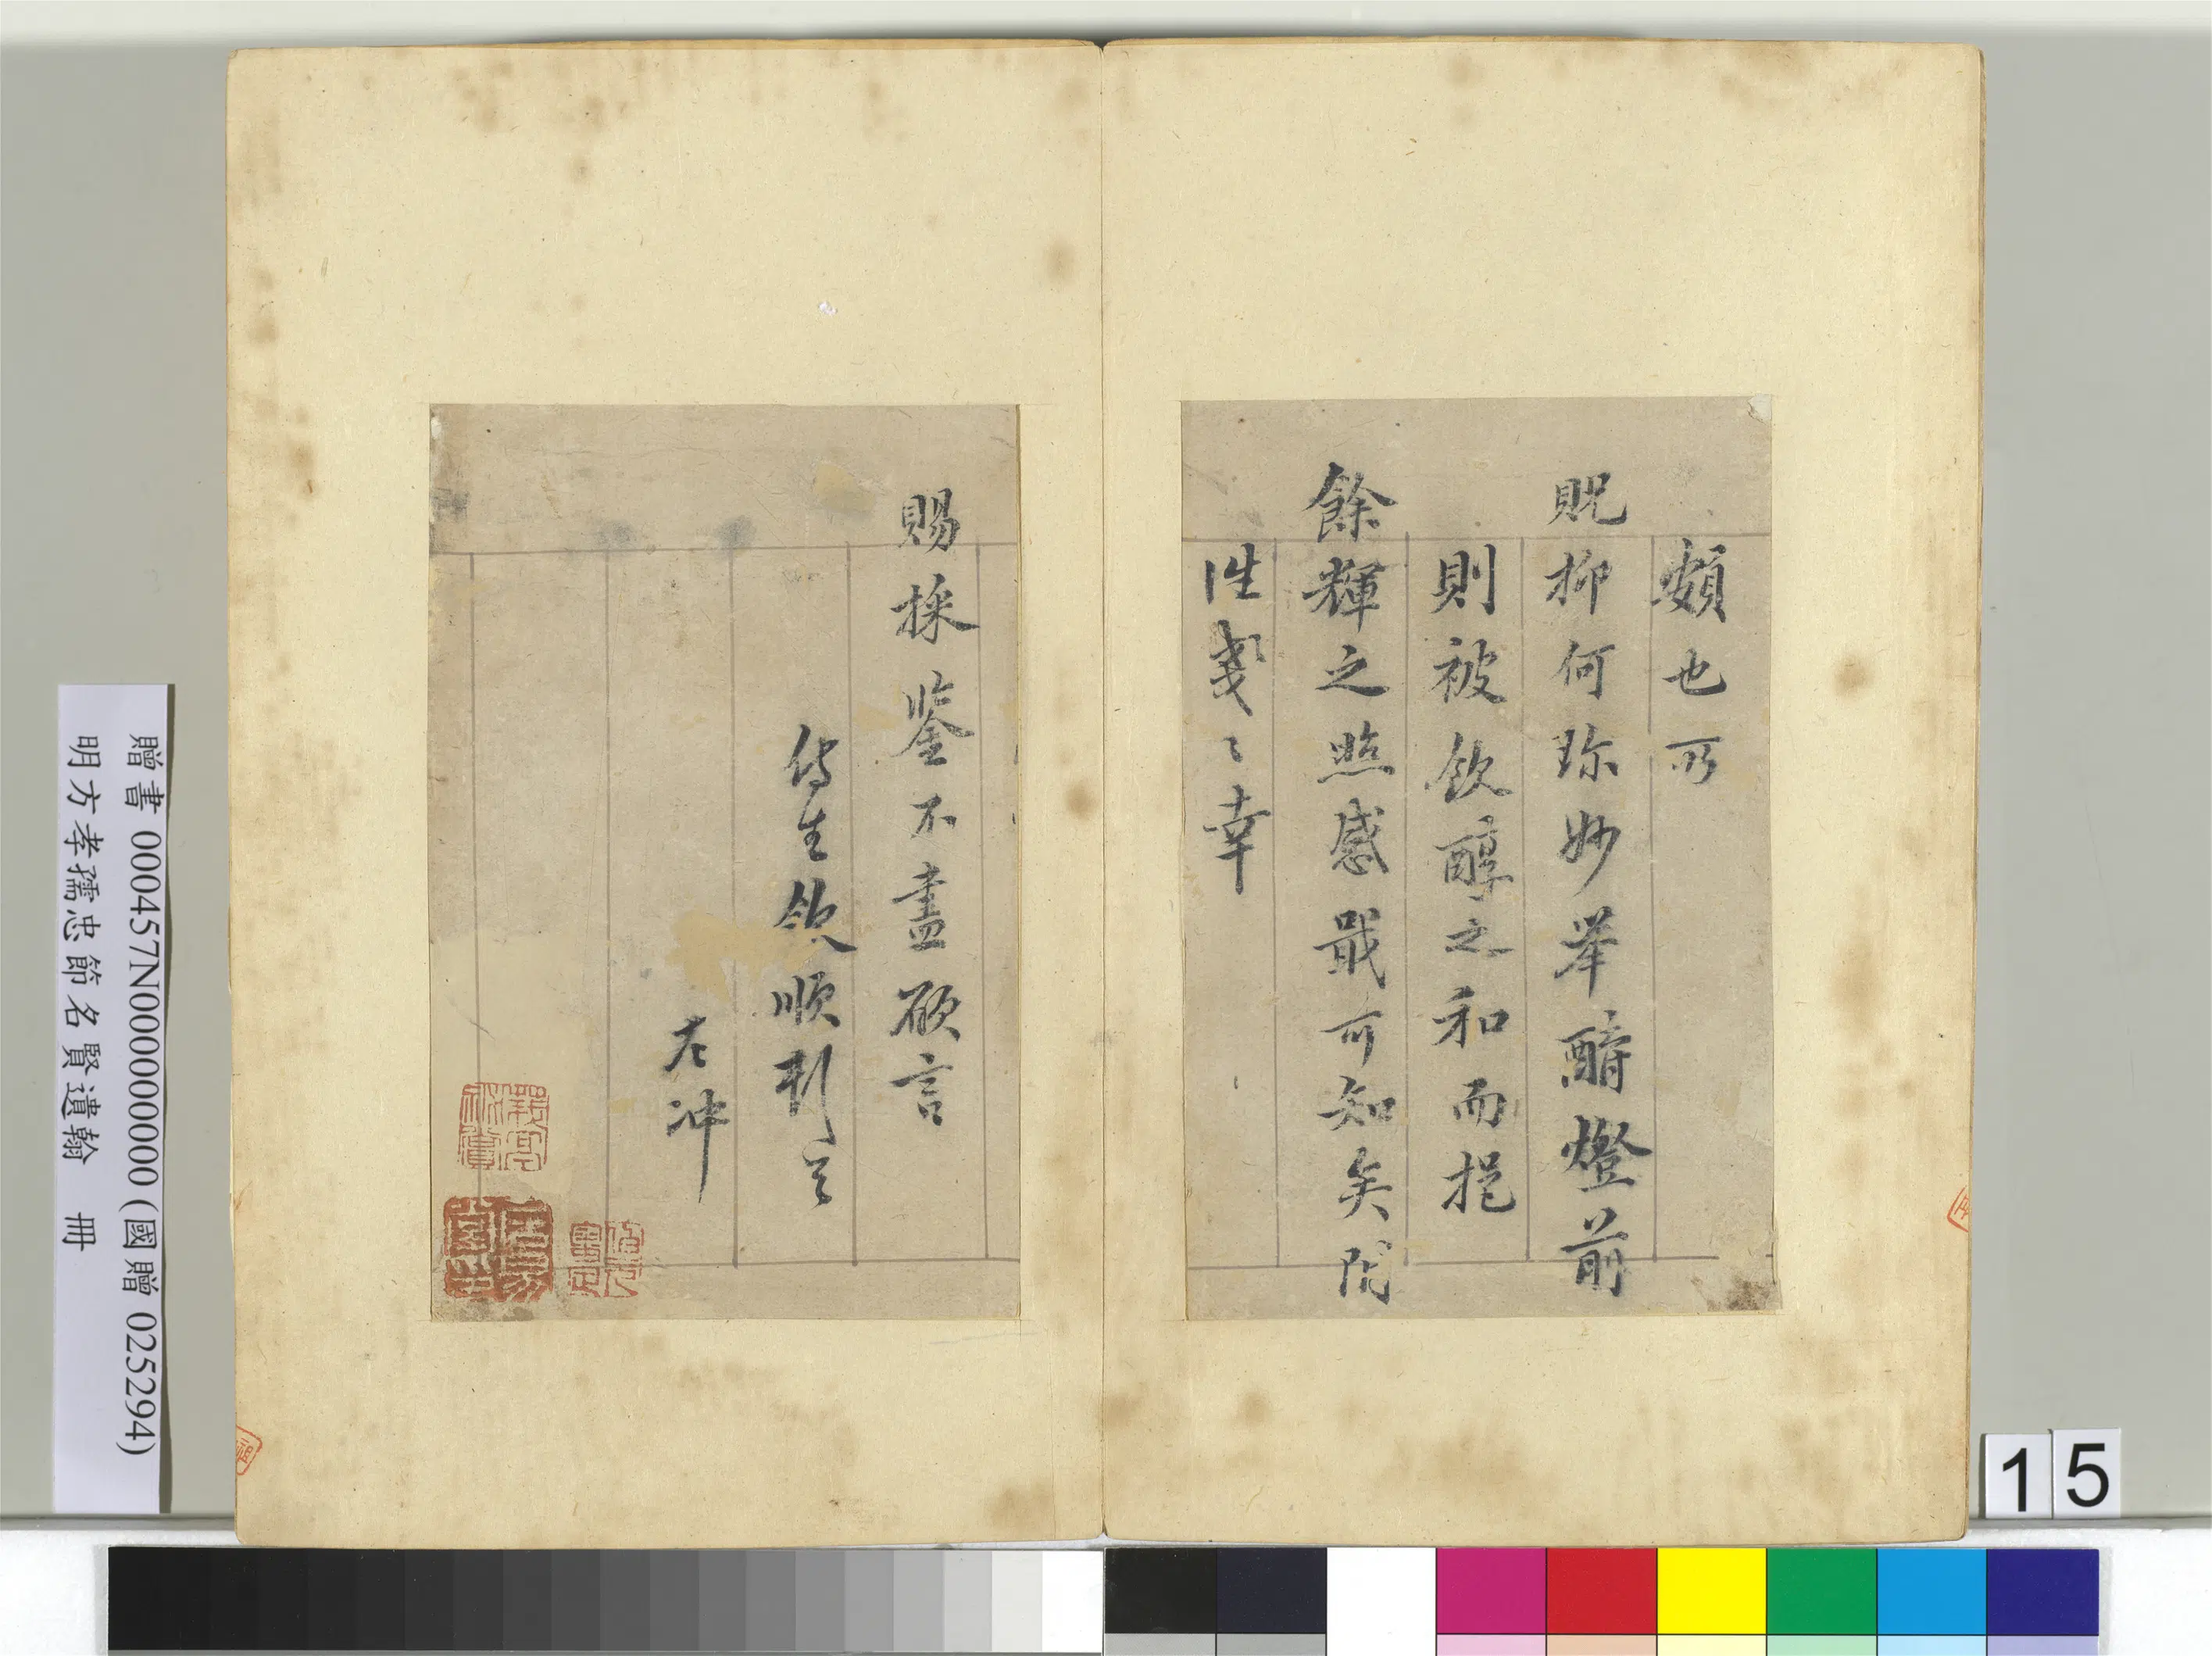 頗也所
貺抑何珎妙舉酧燈前
則被飲醇之和而挹
餘輝之照感戢可知矣
幸
賜採鑒不盡願言
侍生欽順
左冲
贈書 000457N000000000 (國贈 025294)
明方孝孺忠節名賢遺翰 冊
15